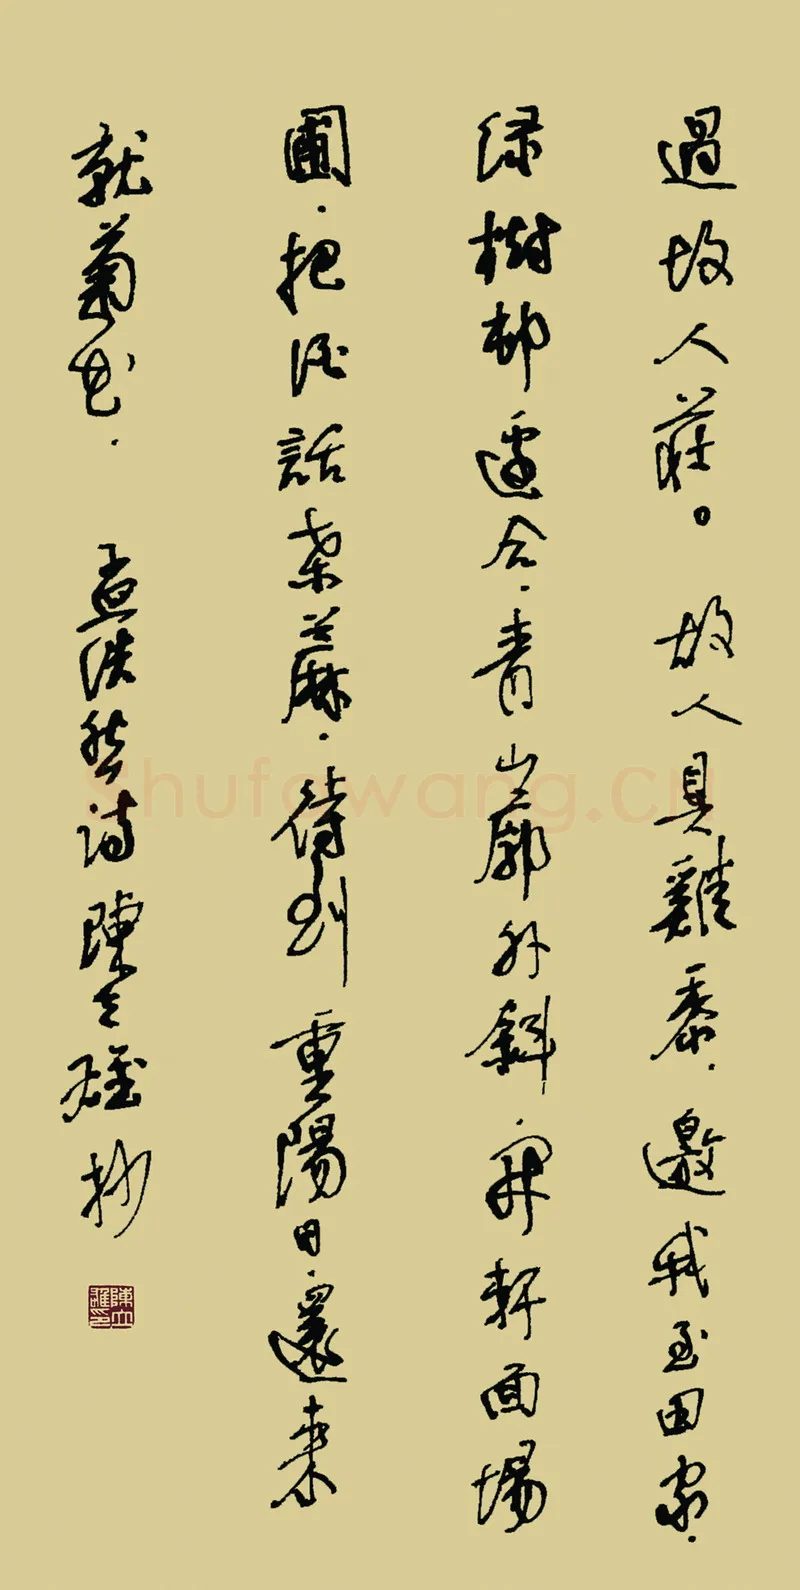 過故人莊。故人具雞黍.邀我至田家.
绿樹邨邊合.青山廓外斜.開軒面場
圃.把酒話桑蔴.待到重陽日.還來
就菊花. 孟浩然詩陳立雄抄
陳立雄印
Shufawang.CN